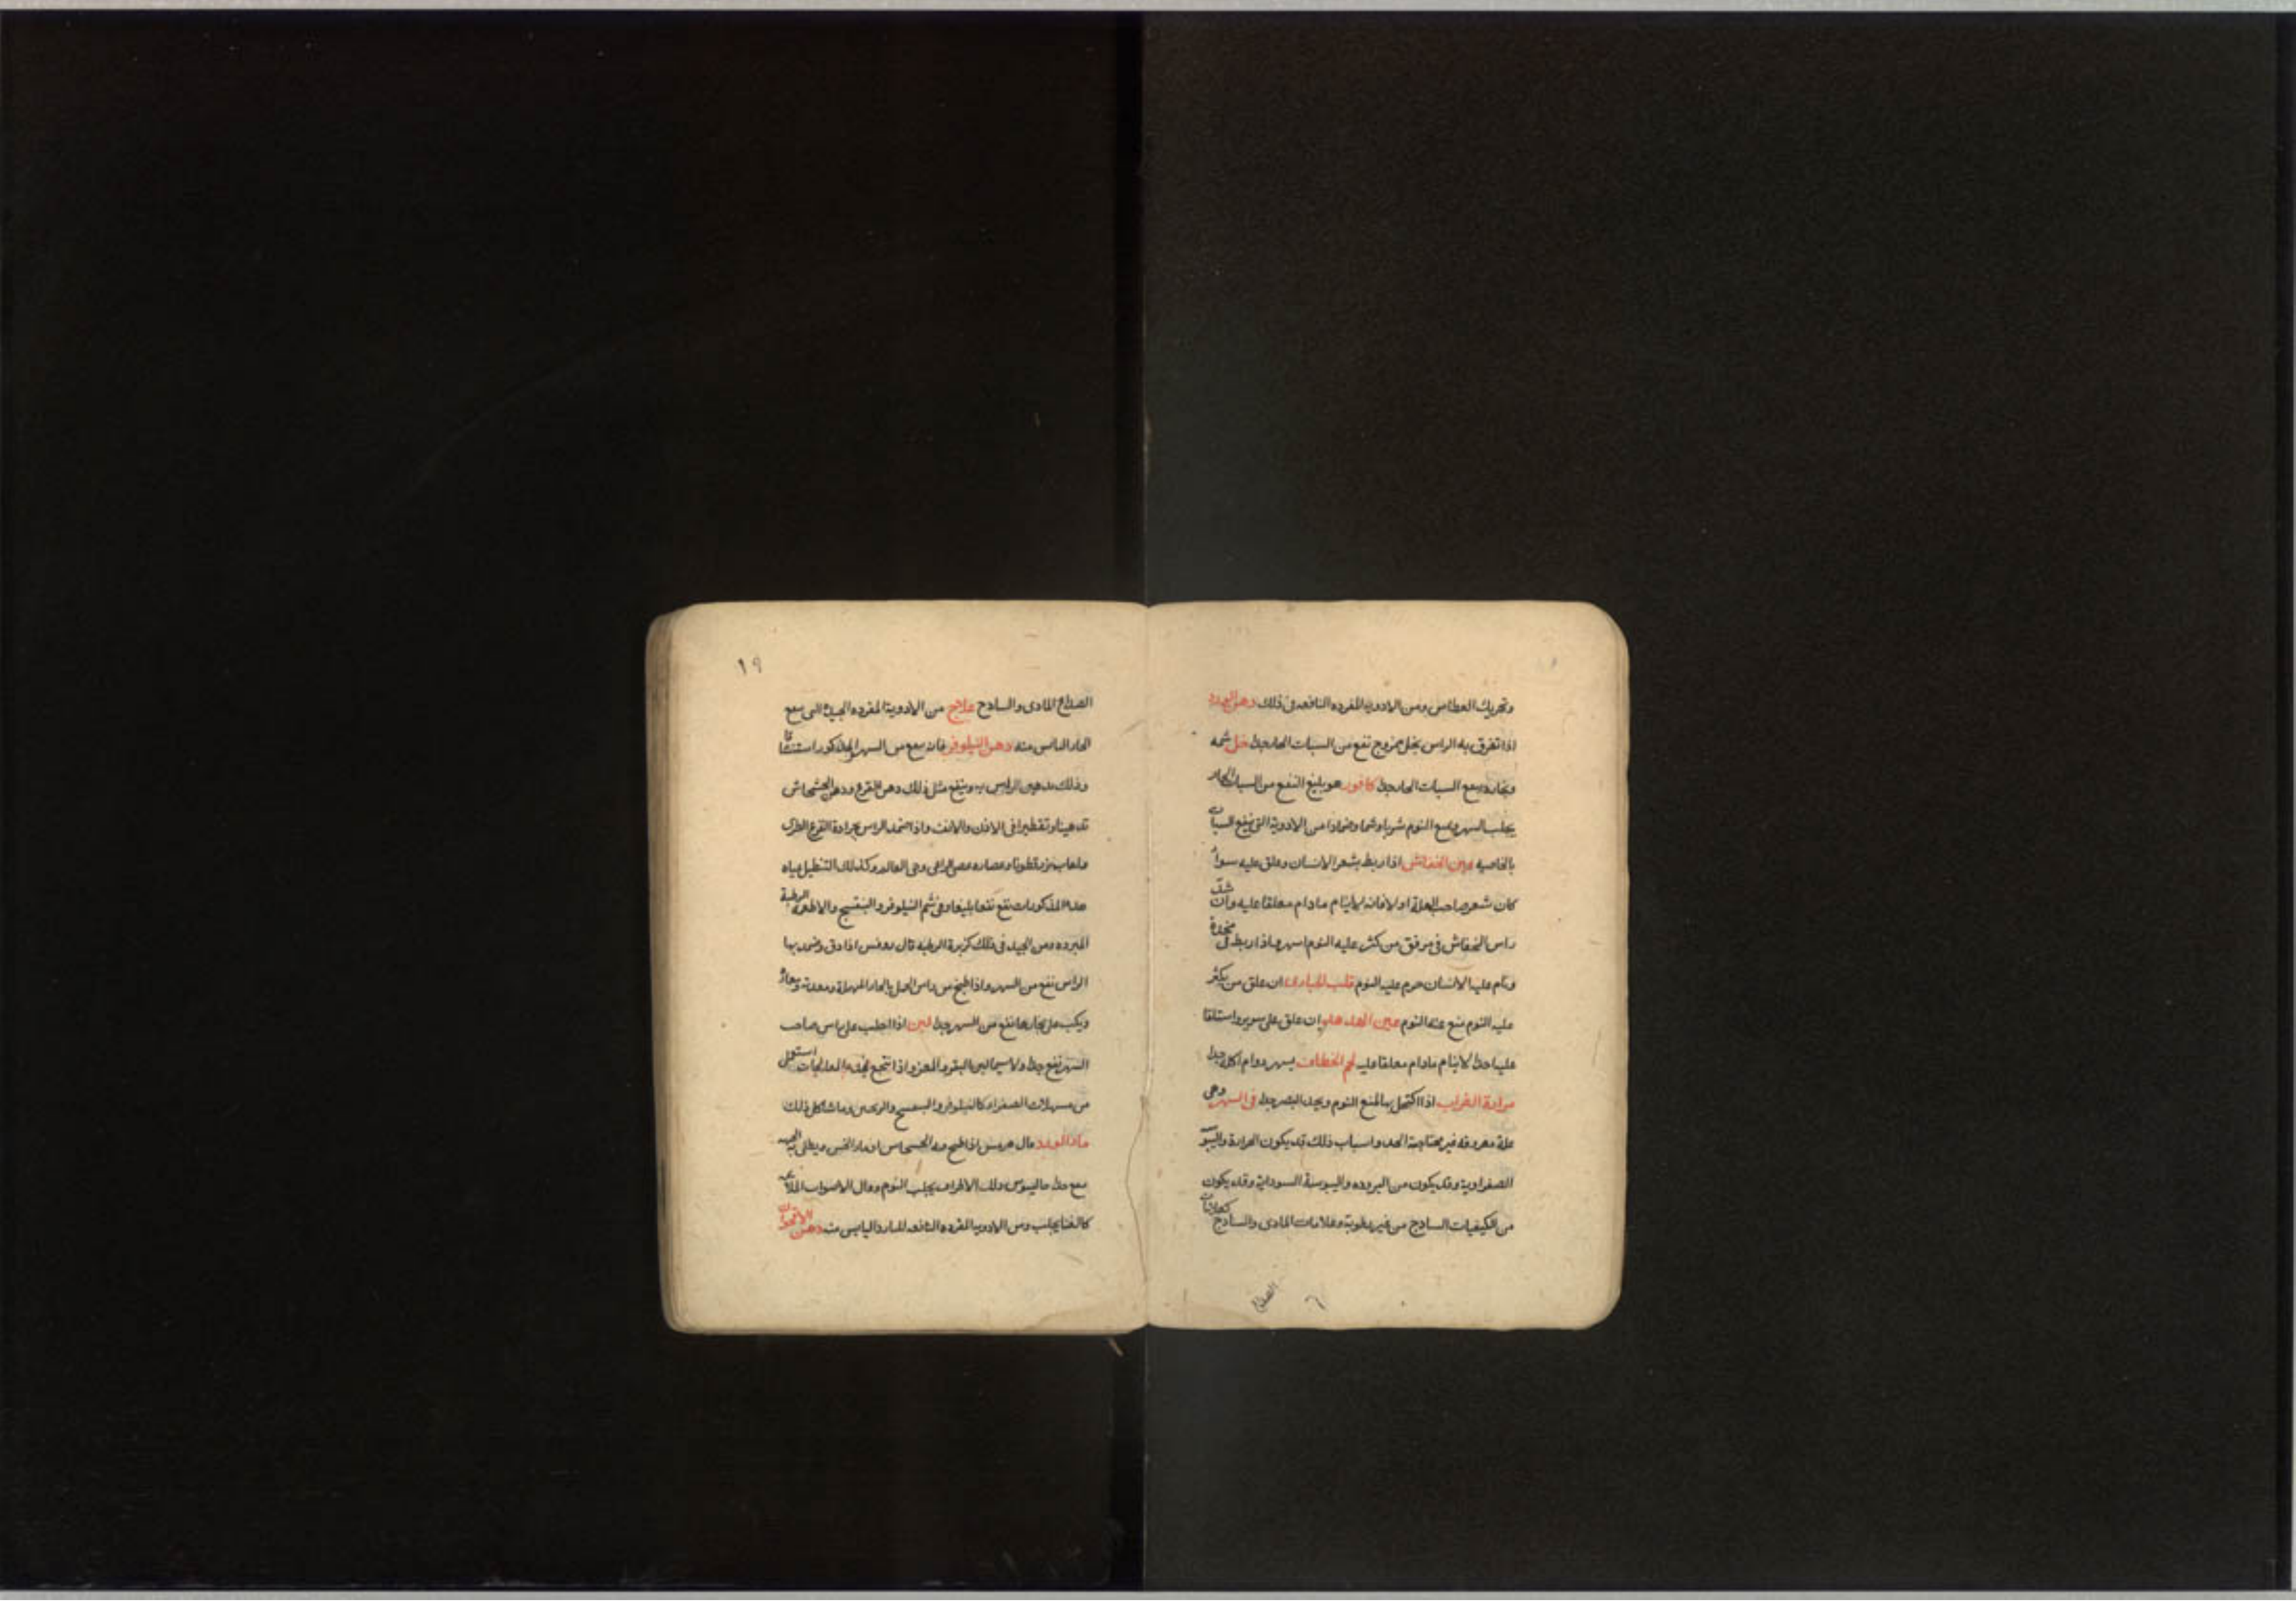 وتحريك العطاس ومن الادويه المفرده النافعه فى ذلك دهن الورد
اذا تفرق به الراس بخل ممزوج نفع من السبات الحار جدا خل شمه
وبخاره ينفع السبات الحار جدا كافور هو بليغ النفع من السبات الحار
يجلب السهر ويمنع النوم شربا وشما وضمادا من الادوية التى ينفع السبات
بالخاصيه عين الخفاش اذا ربط بشعر الانسان وعلق عليه سواء
كان شعر صاحب العلة اولا فانه لاينام مادام معلقا عليه وان شد
راس الخفاش فى مرفق من كثر عليه النوم اسهره اذا ربط فى مخدة
ونام عليه الانسان حرم عليه النوم قلب الحبارى ان علق من يكثر
عليه النوم منع عنه النوم عين الهدهد ان علق على سرير واستلقا
عليه احد لاينام مادام معلقا عليه لحم الخطاف يسهر دوام اكله جدا
مرارة الغراب اذا اكتحل بها تمنع النوم ويحد البصر جدا فى السهر وهى
علة معروفه غير محتاجة الحد واسباب ذلك قد يكون الحرارة واليبوسة
الصفراوية وقد يكون من البروده واليبوسة السوداية وقد يكون
من الكيفيات الساذج من غير رطوبة وعلامات المادى والساذج كعلامات
الصداع
١٩
الصداع المادى والساذج علاج من الادوية المفرده الجيدة التى ينفع
الحار اليابس منه دهن النيلوفر فانه ينفع من السهر المذكور استنشاقا
وذلك بدهن الراس به وينفع مثل ذلك دهن القرع ودهن الخشخاش
تدهينا وتقطيرا فى الاذن والانف واذا ضمد الراس بجرادة القرع الطرى
ولعاب بزر قطونا وعصاره عصى الراعى وحى العالم وكذلك التنطيل بمياه
هذه المذكورات نفع نفعا بليغا وفى شم النيلوفر والبنفسج والاطعمة الرطبة
المبرده ومن الجيد فى ذلك كزبرة الرطبه قال روفس اذا دق وضمد بها
الراس نفع من السهر واذا طبخ من راس الحمل بالحار المهملة ومعدته ومعاؤه
ويكب على بخارها نفع من السهر جدا لبن اذا احلب على راس صاحب
السهر نفع جدا ولا سيما لبن البقر والمعز واذا لم ينجع بهذه المعالجات استعمل
من مسهلات الصفراء كالنيلوفر والبنفسج والترنجبين وما شاكل ذلك
ماء الورد قال هرمس اذا طبخ فيه الخشخاش او بماء الخس ويطلى به الجبهه
نفع جدا جالينوس دلك الاطراف يجلب النوم وقال الاصوات الملاهى
كالغنا يجلب ومن الادويه المفرده النافعه للبارد اليابس منه دهن الاقحوان